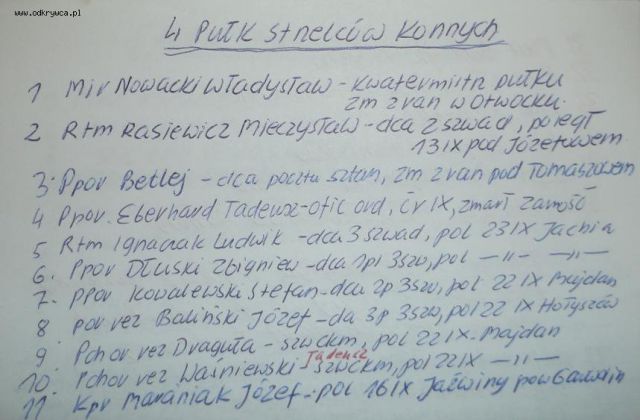 www.odkrywca.pl
4 Pułk Strzelców Konnych
1 Mjr Nowacki Władysław - kwatermistrz pułku
zm z ran w Otwocku.
2 Rtm Rasiewicz Mieczysław - dca 2 szwad, poległ
13 IX pod Józefowem
3. Ppor Betlej - dca pocztu sztan, zm z ran pod Tomaszowem
4 Ppor. Eberhard Tadeusz - ofic ord, Cr IX, zmarł Zamość
5 Rtm Ignaczak Ludwik - dca 3 szwad, pol 23 IX Jachia
6. Ppor Dłuski Zbigniew - dca 1pl 3szw, pol - 11 - - 11 -
7. Ppor Kowalewski Stefan - dca 2p 3szw, pol 22 IX Majdan
8 por rez Baliński Józef - da 3p 3szw, pol 22 IX Hołyszów
9 Pchor rez Draguła - szwckm, pol 22 IX. Majdan
10. Pchor rez Waśniewski Tadeusz szwckm, pol 22 IX - 11 -
11. Kpr Maraniak Józef - pol 16 IX Jaźwiny pow Garwolin